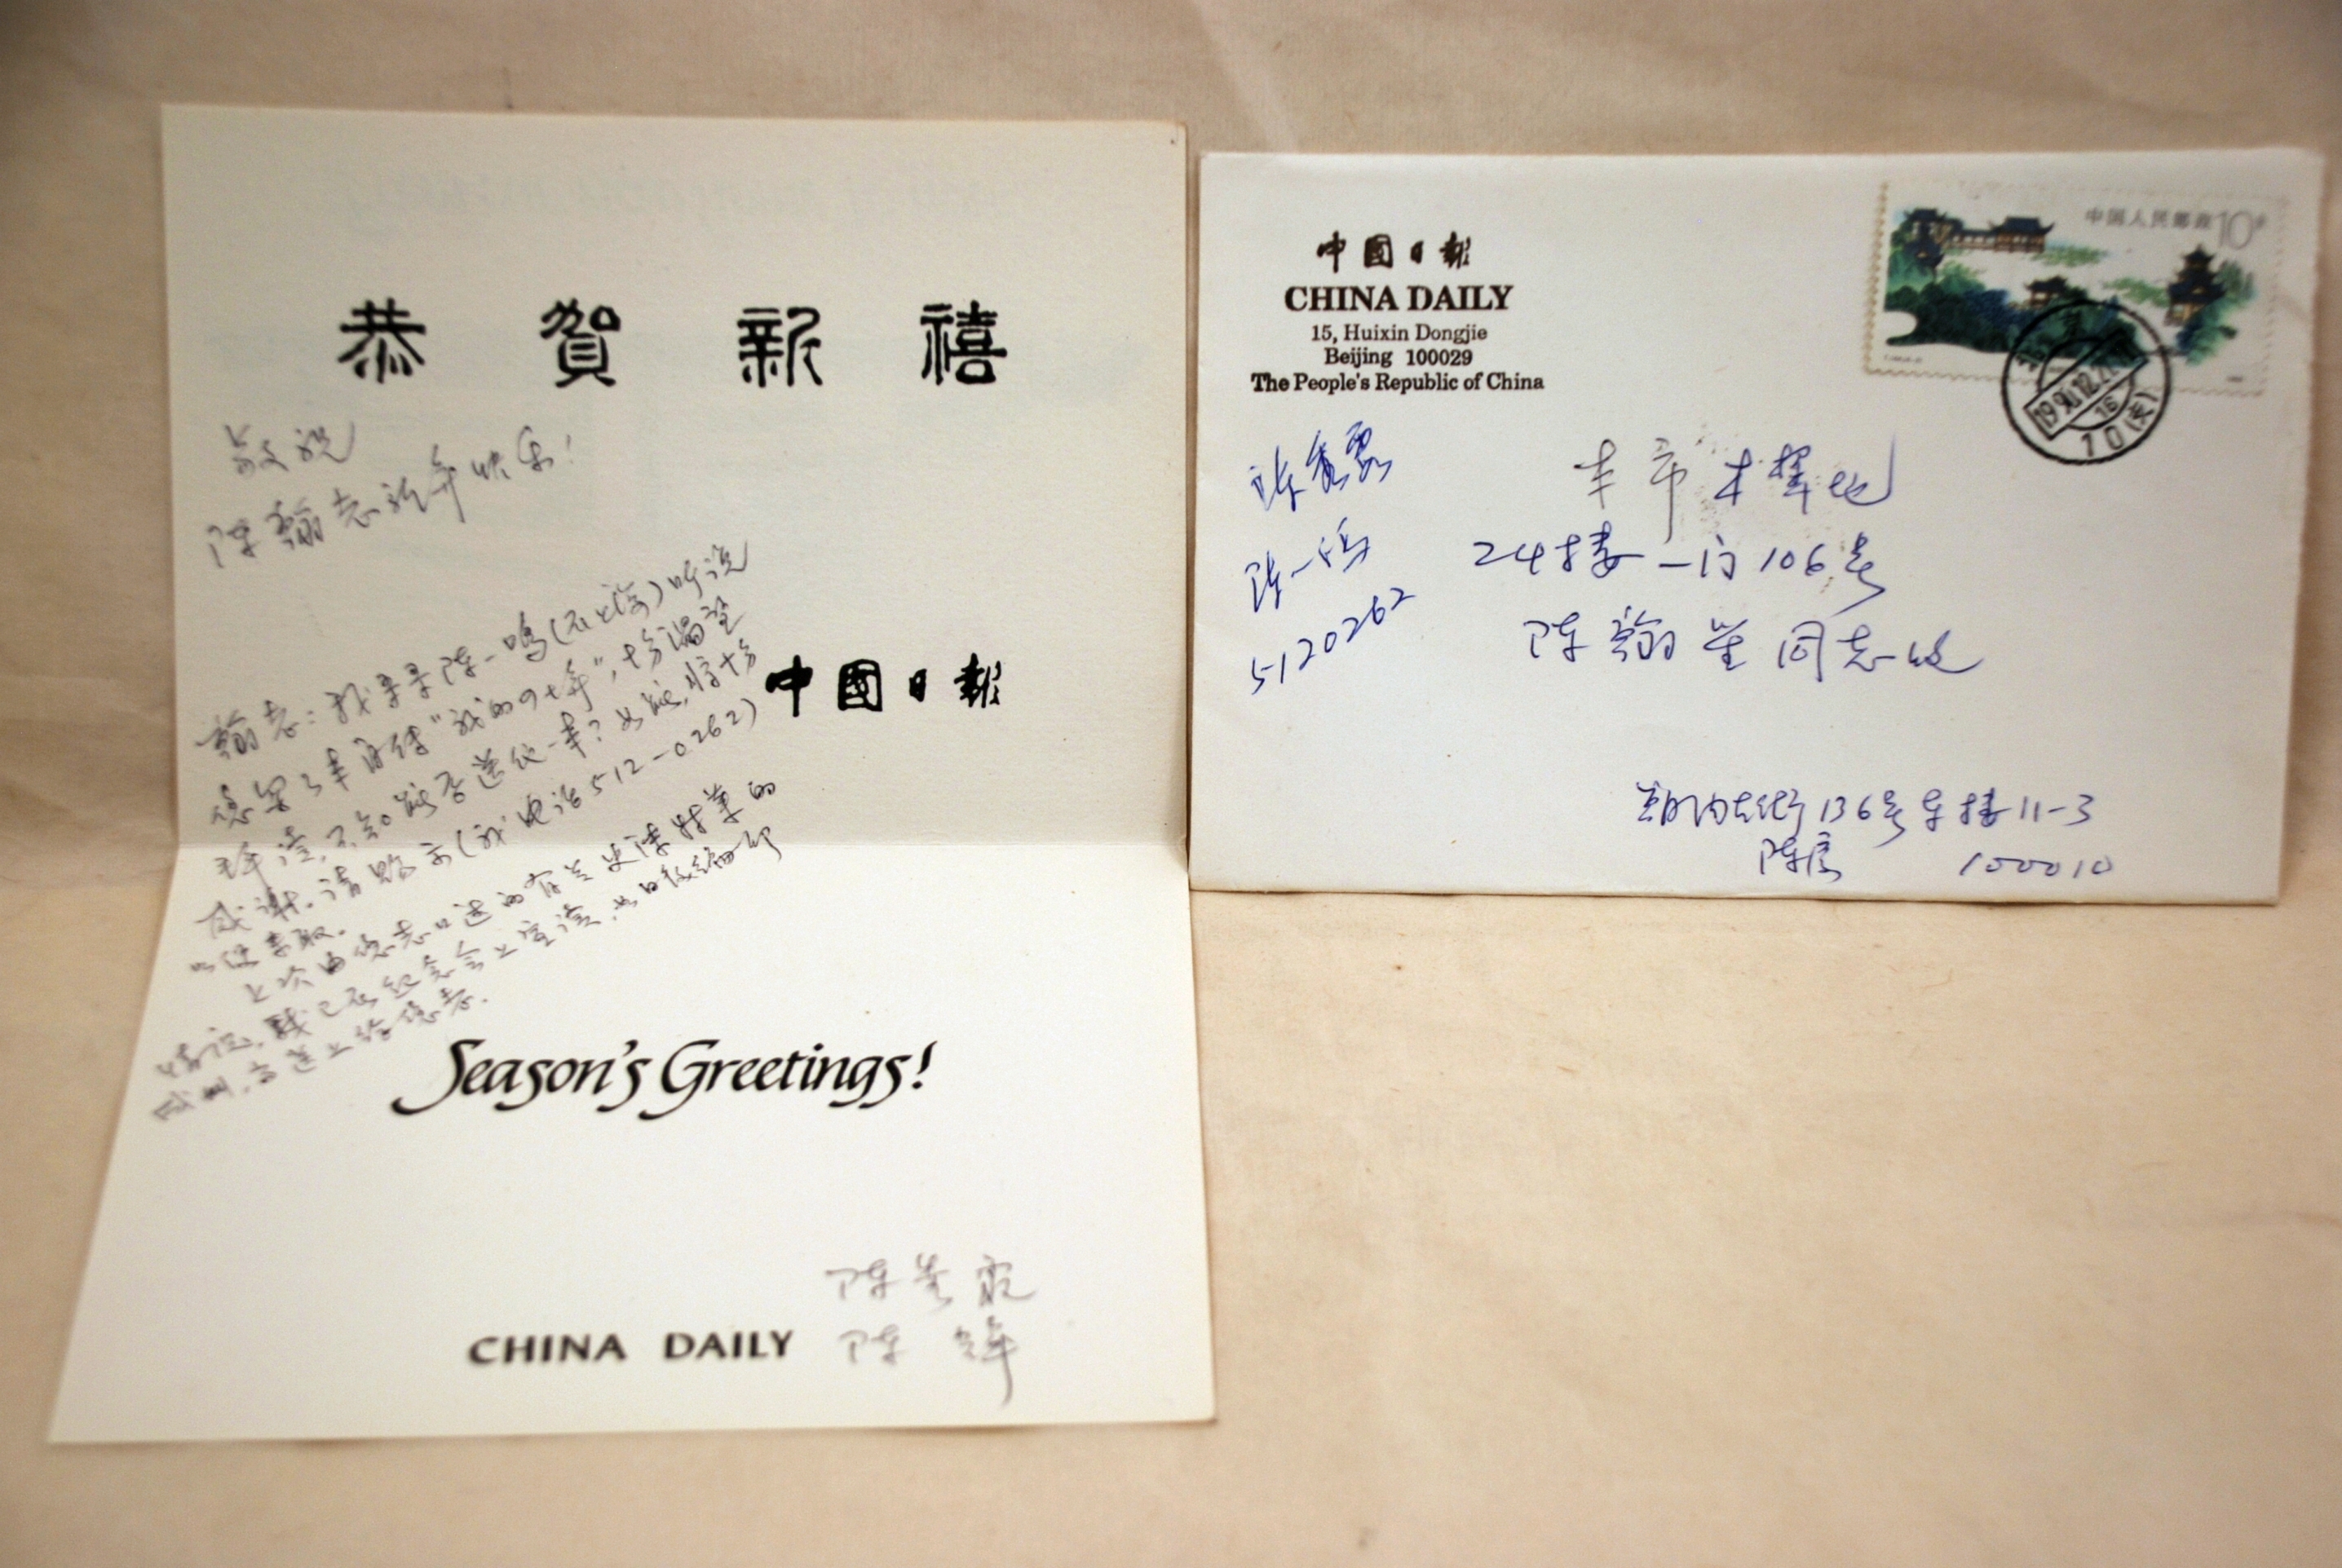 恭賀新禧
敬祝
陈翰老新年快乐！
翰老：我哥哥陈一鸣(在上海)听说
您写了本自传"我的四十年"，十分渴望
拜读，不知能否送他一本？如能，将十分
感谢。请赐示(我电话512-0262)
以便来取。
上次由您老口述的有关史沫特莱的
成册，当送上给您老。
中國日報
Season's Greetings!
CHINA DAILY
陈
陈
中國日報
CHINA DAILY
15, Huixin Dongjie
Beijing 100029
The People's Republic of China
中国人民邮政 10分
1990.12.2
16
10(支)
陈
陈一鸣
5120262
本市木樨地
24楼一门106号
陈翰笙同志收
朝内大街136号东楼11-3
陈 100010